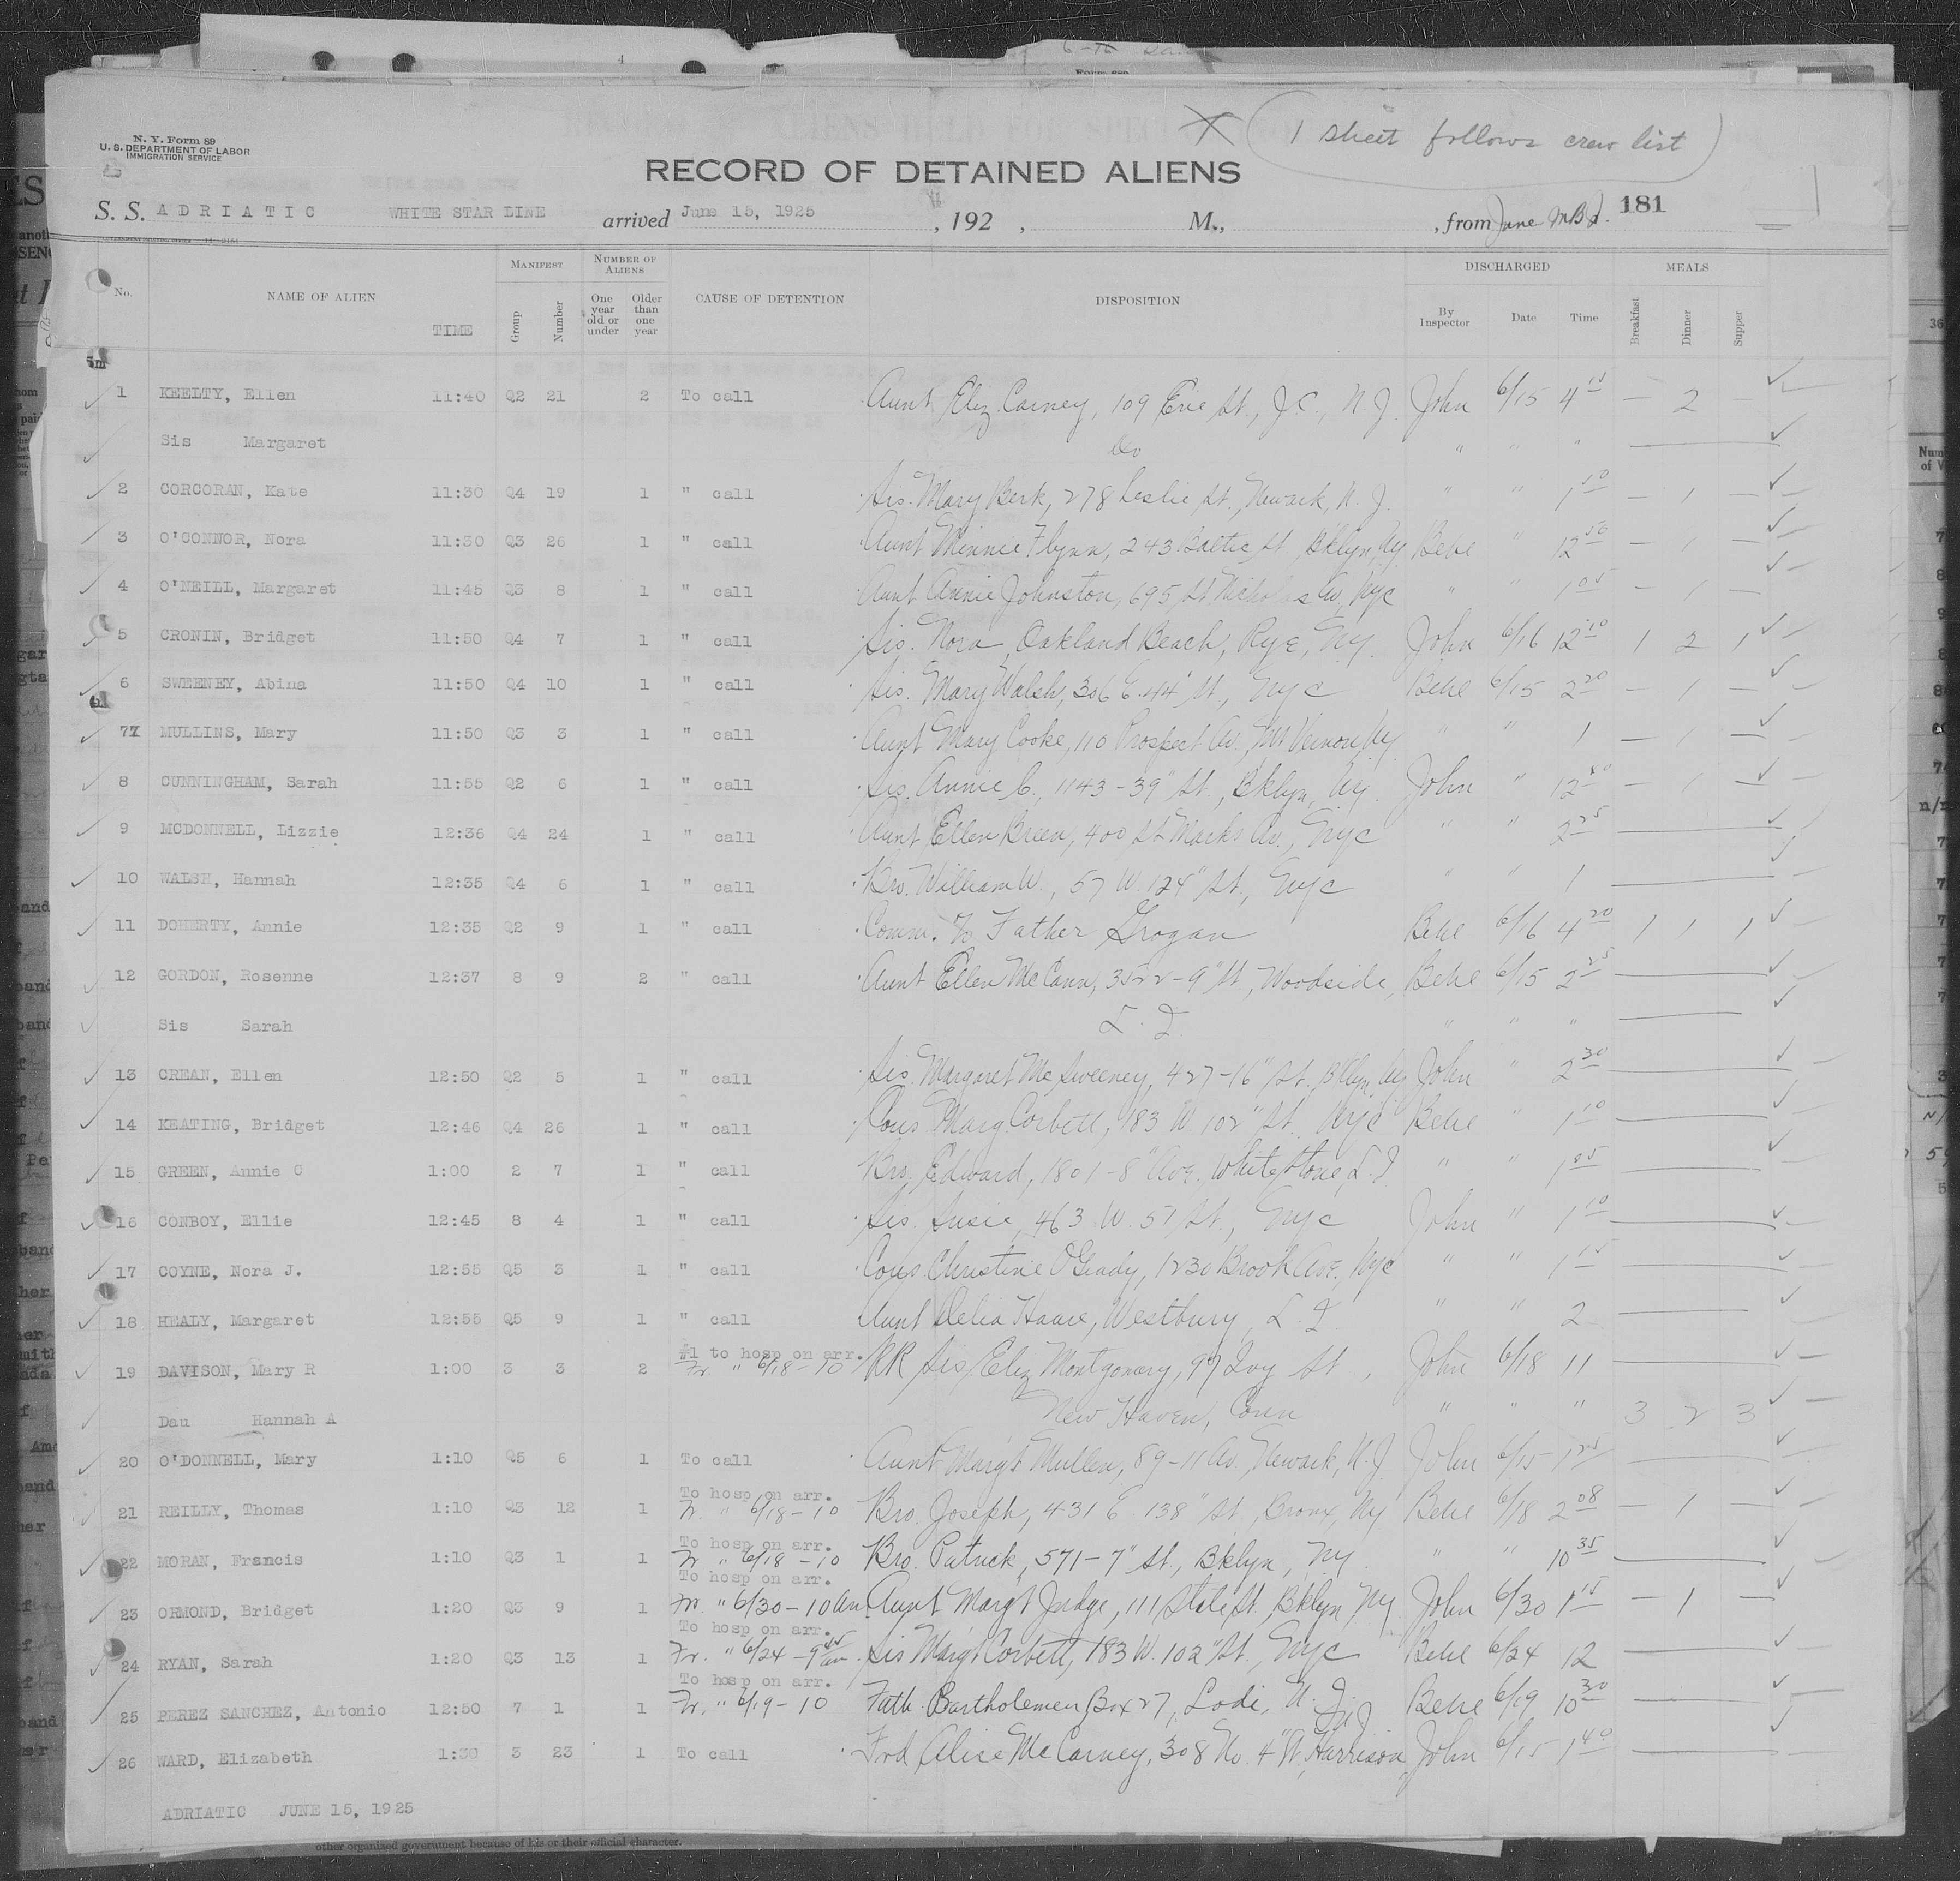 6-16
Form 689
N. Y. Form 89
U. S. DEPARTMENT OF LABOR
IMMIGRATION SERVICE
X 1 sheet follows crew list
RECORD OF DETAINED ALIENS
S. S. ADRIATIC WHITE STAR LINE arrived June 15, 1925, 192 , M., , from June 181
No. NAME OF ALIEN TIME MANIFEST Group Number NUMBER OF ALIENS One year old or under Older than one year CAUSE OF DETENTION DISPOSITION DISCHARGED By Inspector Date Time MEALS Breakfast Dinner Supper
1 KEELTY, Ellen 11:40 Q2 21 2 To call Aunt Eliz Carney, 109 Erie St., J.C., N.J. John 6/15 4 15 — 2
Sis Margaret Do " " "
2 CORCORAN, Kate 11:30 Q4 19 1 " call Sis. Mary Berk, 278 Leslie St., Newark, N. J. " " 1 10 — 1 —
3 O'CONNOR, Nora 11:30 Q3 26 1 " call Aunt Minnie Flynn, 243 Baltic St, Bklyn, Ny. Behe " 12 50 — 1 —
4 O'NEILL, Margaret 11:45 Q3 8 1 " call Aunt Annie Johnston, 695 St Nicholas Av, Nyc " " 1 05 — 1 —
5 CRONIN, Bridget 11:50 Q4 7 1 " call Sis. Nora, Oakland Beach, Rye, Ny. John 6/16 12 10 1 2 1
6 SWEENEY, Abina 11:50 Q4 10 1 " call Sis. Mary Walsh, 306 E. 44" St, Nyc Behe 6/15 2 20 — 1 —
7 MULLINS, Mary 11:50 Q3 3 1 " call Aunt Mary Cooke, 110 Prospect Av., Mt Vernon, Ny " " 1 — 1 —
8 CUNNINGHAM, Sarah 11:55 Q2 6 1 " call Sis. Annie C., 1143-39" St., Bklyn, Ny. John " 12 50 — 1 —
9 MCDONNELL, Lizzie 12:36 Q4 24 1 " call Aunt Ellen Breen, 400 St Marks Av., Nyc " " 2 25
10 WALSH, Hannah 12:35 Q4 6 1 " call Bro. William W., 57 W. 124" St, Nyc " " 1
11 DOHERTY, Annie 12:35 Q2 9 1 " call Comm. To Father Grogan Behe 6/16 4 20 1 1 1
12 GORDON, Rosenne 12:37 8 9 2 " call Aunt Ellen McCann, 3522-9" St, Woodside, Behe 6/15 2 25
Sis Sarah L. I. " " "
13 CREAN, Ellen 12:50 Q2 5 1 " call Sis. Margaret McSweeney, 427-16" St. Bklyn, Ny John " 2 30
14 KEATING, Bridget 12:46 Q4 26 1 " call Cous. Marg. Corbett, 183 W. 102" St. Nyc Behe " 1 10
15 GREEN, Annie C 1:00 2 7 1 " call Bro. Edward, 1801-8" Ave., Whitestone, L. I. " " 1 05
16 CONBOY, Ellie 12:45 8 4 1 " call Sis. Susie, 463 W. 51 St., Nyc John " 1 10
17 COYNE, Nora J. 12:55 Q5 3 1 " call Cous. Christine O'Grady, 1230 Brook Ave, Nyc " " 1 15
18 HEALY, Margaret 12:55 Q5 9 1 " call Aunt Delia Haare, Westbury, L. I. " " 2
#1 to hosp on arr.
19 DAVISON, Mary R 1:00 3 3 2 Fr " 6/18-10 RR Sis Eliz Montgomery, 97 Ivy St, John 6/18 11
Dau Hannah A New Haven, Conn " " " 3 2 3
20 O'DONNELL, Mary 1:10 Q5 6 1 To call Aunt Marg't Mullen, 89-11 Av., Newark, N.J. John 6/15 1 25
To hosp on arr.
21 REILLY, Thomas 1:10 Q3 12 1 Fr. " 6/18-10 Bro. Joseph, 431 E 138" St, Bronx, Ny Behe 6/18 2 08 — 1 —
To hosp on arr.
22 MORAN, Francis 1:10 Q3 1 1 Fr " 6/18-10 Bro. Patrick, 571-7" St., Bklyn, Ny. " " 10 35
To hosp on arr.
23 ORMOND, Bridget 1:20 Q3 9 1 Fr. " 6/30-10 am Aunt Marg't Judge, 111 State St, Bklyn Ny. John 6/30 1 15 — 1 —
To hosp on arr.
24 RYAN, Sarah 1:20 Q3 13 1 Fr. " 6/24-9 45 am Sis Marg't Corbett, 183 W. 102" St., Nyc Behe 6/24 12
To hosp on arr.
25 PEREZ SANCHEZ, Antonio 12:50 7 1 1 Fr. " 6/19-10 Fath. Bartholemew, Box 27, Lodi, N. J. Behe 6/19 10 30
26 WARD, Elizabeth 1:30 3 23 1 To call Frd Alice McCarney, 308 No. 4" St, Harrison, N.J. John 6/15 1 40
ADRIATIC JUNE 15, 1925
other organized government because of his or their official character.